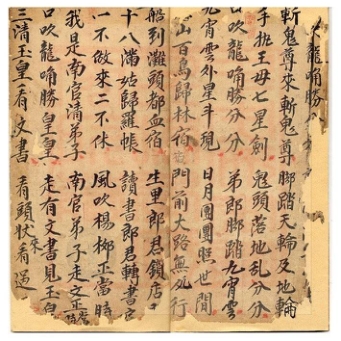 龍 勝
斬鬼尊來斬鬼尊 脚踏天輪及地輪
手執王母七星劍 鬼頭落地乱分分
吹龍 勝分分 弟郎脚踏九霄雲
九霄雲外星斗現 日月團團照世間
山百鳥歸林宿 門前大路無 行
船到灘頭都血宿 生里郎君鎖店
十八滿姑歸羅帳 讀書郎君轉書官
一不做來二不休 風吹楊柳正當時
我是南官清弟子 南官弟子走文
口吹龍 勝皇皇 走有文書見玉皇
三清玉皇看文書 看頭狀來看過